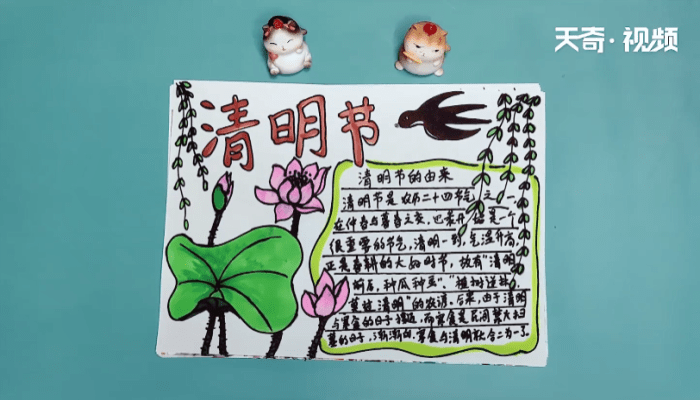 天奇·视频
清明节
清明节的由来
清明节是农历二十四节气之一,
在仲春与暮春之交,也是一个
很重要的节气,清明一到,气温升高,
正是春耕的大好时节,故有"清明
前后,种瓜种豆"。"植树造林,
莫过清明"的农谚。后来,由于清明
与寒食的日子接近,而寒食是民间禁火扫
墓的日子,渐渐的,寒食与清明就合二为一了。